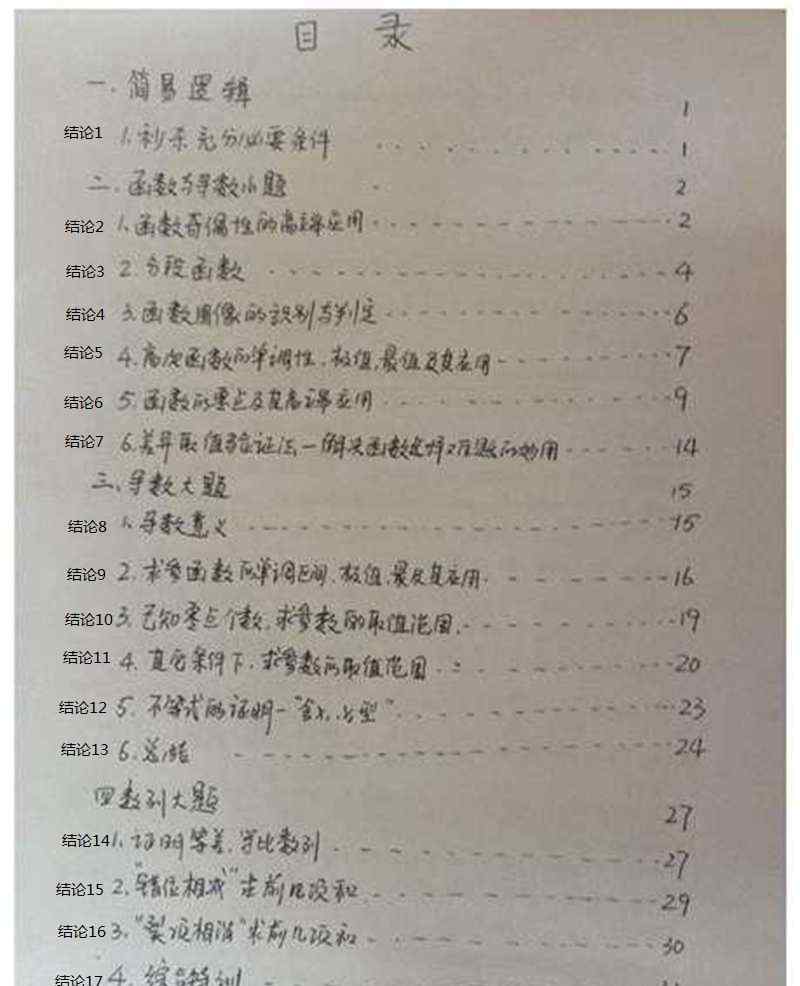 目 录
一.简易逻辑 1
结论1 1.秒杀充分必要条件 1
二.函数与导数小题 2
结论2 1.函数奇偶性的高端应用 2
结论3 2.分段函数 4
结论4 3.函数图像的识别与判定 6
结论5 4.高次函数的单调性.极值.最值及其应用 7
结论6 5.函数的零点及其高端应用 9
结论7 6.差异取值验证法—解决函数选择难题的妙用 14
三.导数大题 15
结论8 1.导数意义 15
结论9 2.求参函数的单调区间.极值.最及其应用 16
结论10 3.已知零点个数.求参数的取值范围 19
结论11 4.其它条件下.求参数的取值范围 20
结论12 5.不等式的证明— 23
结论13 6.总结 24
四数列大题 27
结论14 1.证明等差.等比数列 27
结论15 2."错位相减"求前几项和 29
结论16 3."裂项相消"求前几项和 30
结论17 4.综合特训